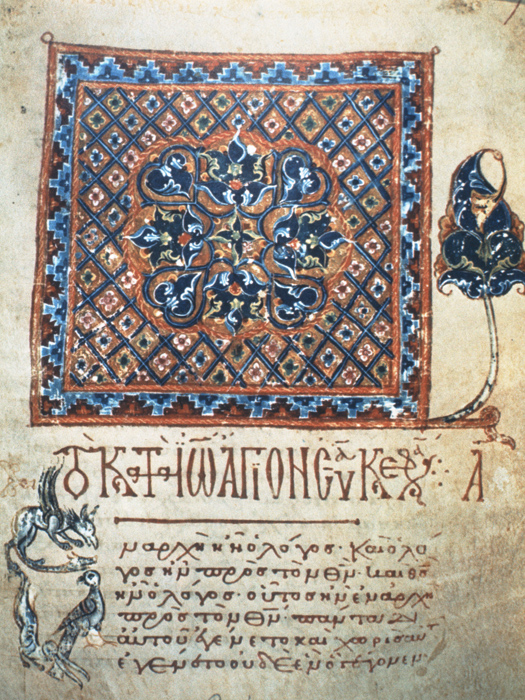 Τὸ ΚΑΤ ΙΩ ΑΓΙΟΝ ΕΥΑ ΚΕΦΑ Α
Ἐν ἀρχῆ ἦν ὁ λόγος· Καὶ ὁ λό
γος ἦν πρὸς τὸν θν· και θς
ἦν ὁ λόγος· οὗτος ἦν ἐν ἀρχῆ
πρὸς τὸν θν· πάντα δι
αὐτοῦ ἐγένετο καὶ χωρὶς αυ
ἐγένετο οὐδὲ ἕν ὃ γέγονεν·